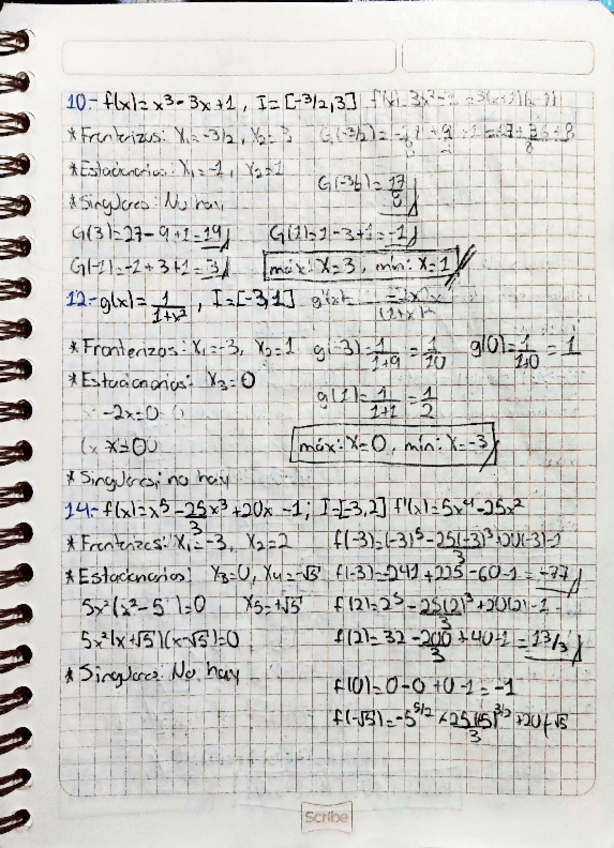 10.- f(x)= x³-3x+1, I=[-3/2,3] f'(x)=3x²-3 =3(x+1)(x-1)
*Fronterizos: X₁=-3/2, X₂=3
*Estacionarios: X₁=-1, X₂=1
G(-3/2)=17/8
*Singulares: No hay
G(3)=27-9+1=19 G(1)=1-3+1=-1
G(-1)=-1+3+1=3 máx: X=3, mín: X=1
12- g(x)= 1/(1+x²), I=[-3,1] g'(x)=
*Fronterizos: X₁=-3, X₂=1 g(-3)=1/(1+9)=1/10 g(0)=1/(1+0)=1
*Estacionarios: X₃=0
-2x=0 g(1)=1/(1+1)=1/2
X=0 máx: X=0, mín: X=-3
*Singulares: no hay
14- f(x)=x⁵-25/3x³+20x-1; I=[-3,2] f'(x)=5x⁴-25x²
*Fronterizos: X₁=-3, X₂=2 f(-3)=(-3)⁵-25(-3)³/3+20(-3)-1
*Estacionarios: X₃=0, X₄=-√5 f(-3)=-241+225-60-1=-77
5x²(x²-5)=0 X₅=+√5 f(2)=2⁵-25(2)³/3+20(2)-1
5x²(x+√5)(x-√5)=0 f(2)=32-200/3+40-1=13/3
*Singulares: No hay
f(0)=0-0+0-1=-1
f(-√5)=-5^5/2+25(5)^3/2/3+20(-√5
Scribe